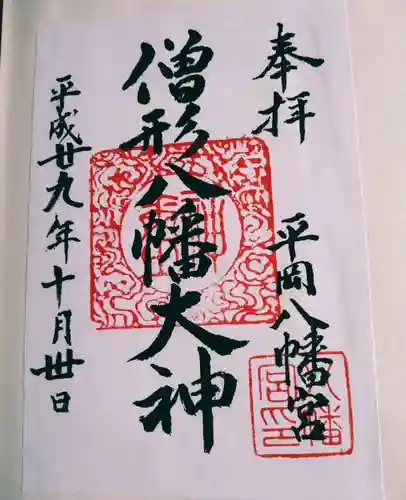 奉拝
平岡八幡宮
僧形八幡大神
平成廿九年十月卅日